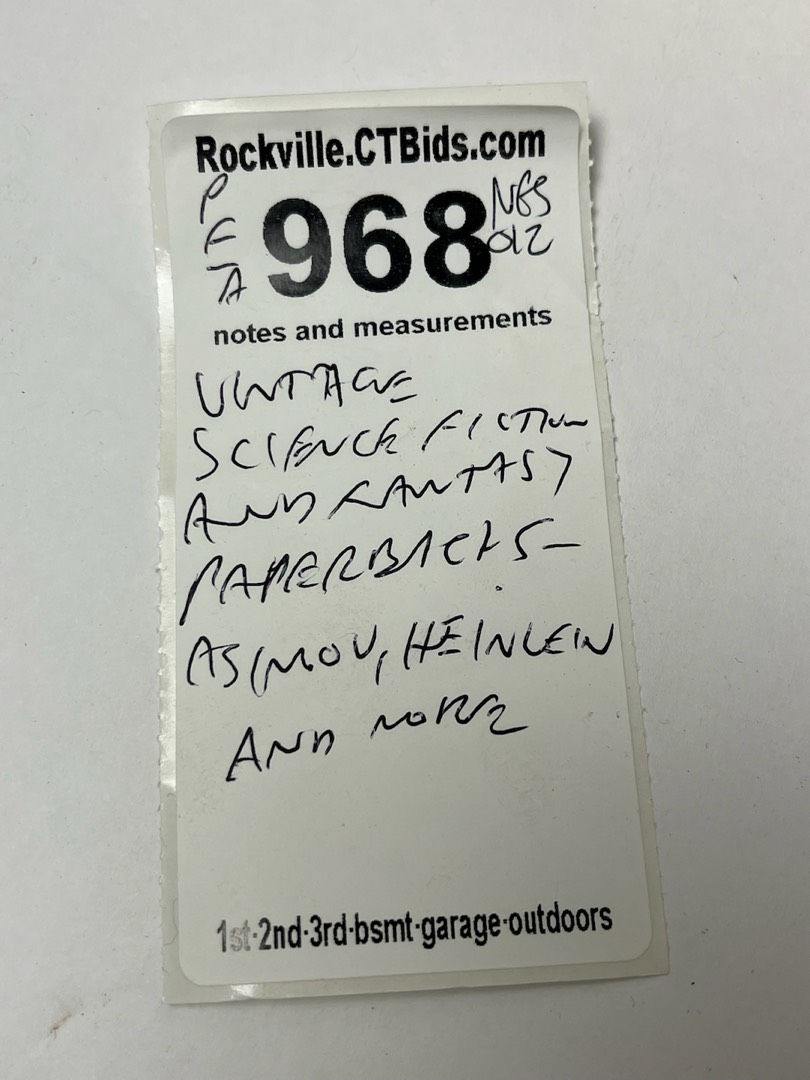 Rockville.CTBids.com
P
F
A
968
NGS
012
notes and measurements
VINTAGE
SCIENCE FICTION
AND FANTASY
PAPERBACKS-
ASIMOV, HEINLEIN
AND MORE
1st·2nd·3rd·bsmt·garage·outdoors